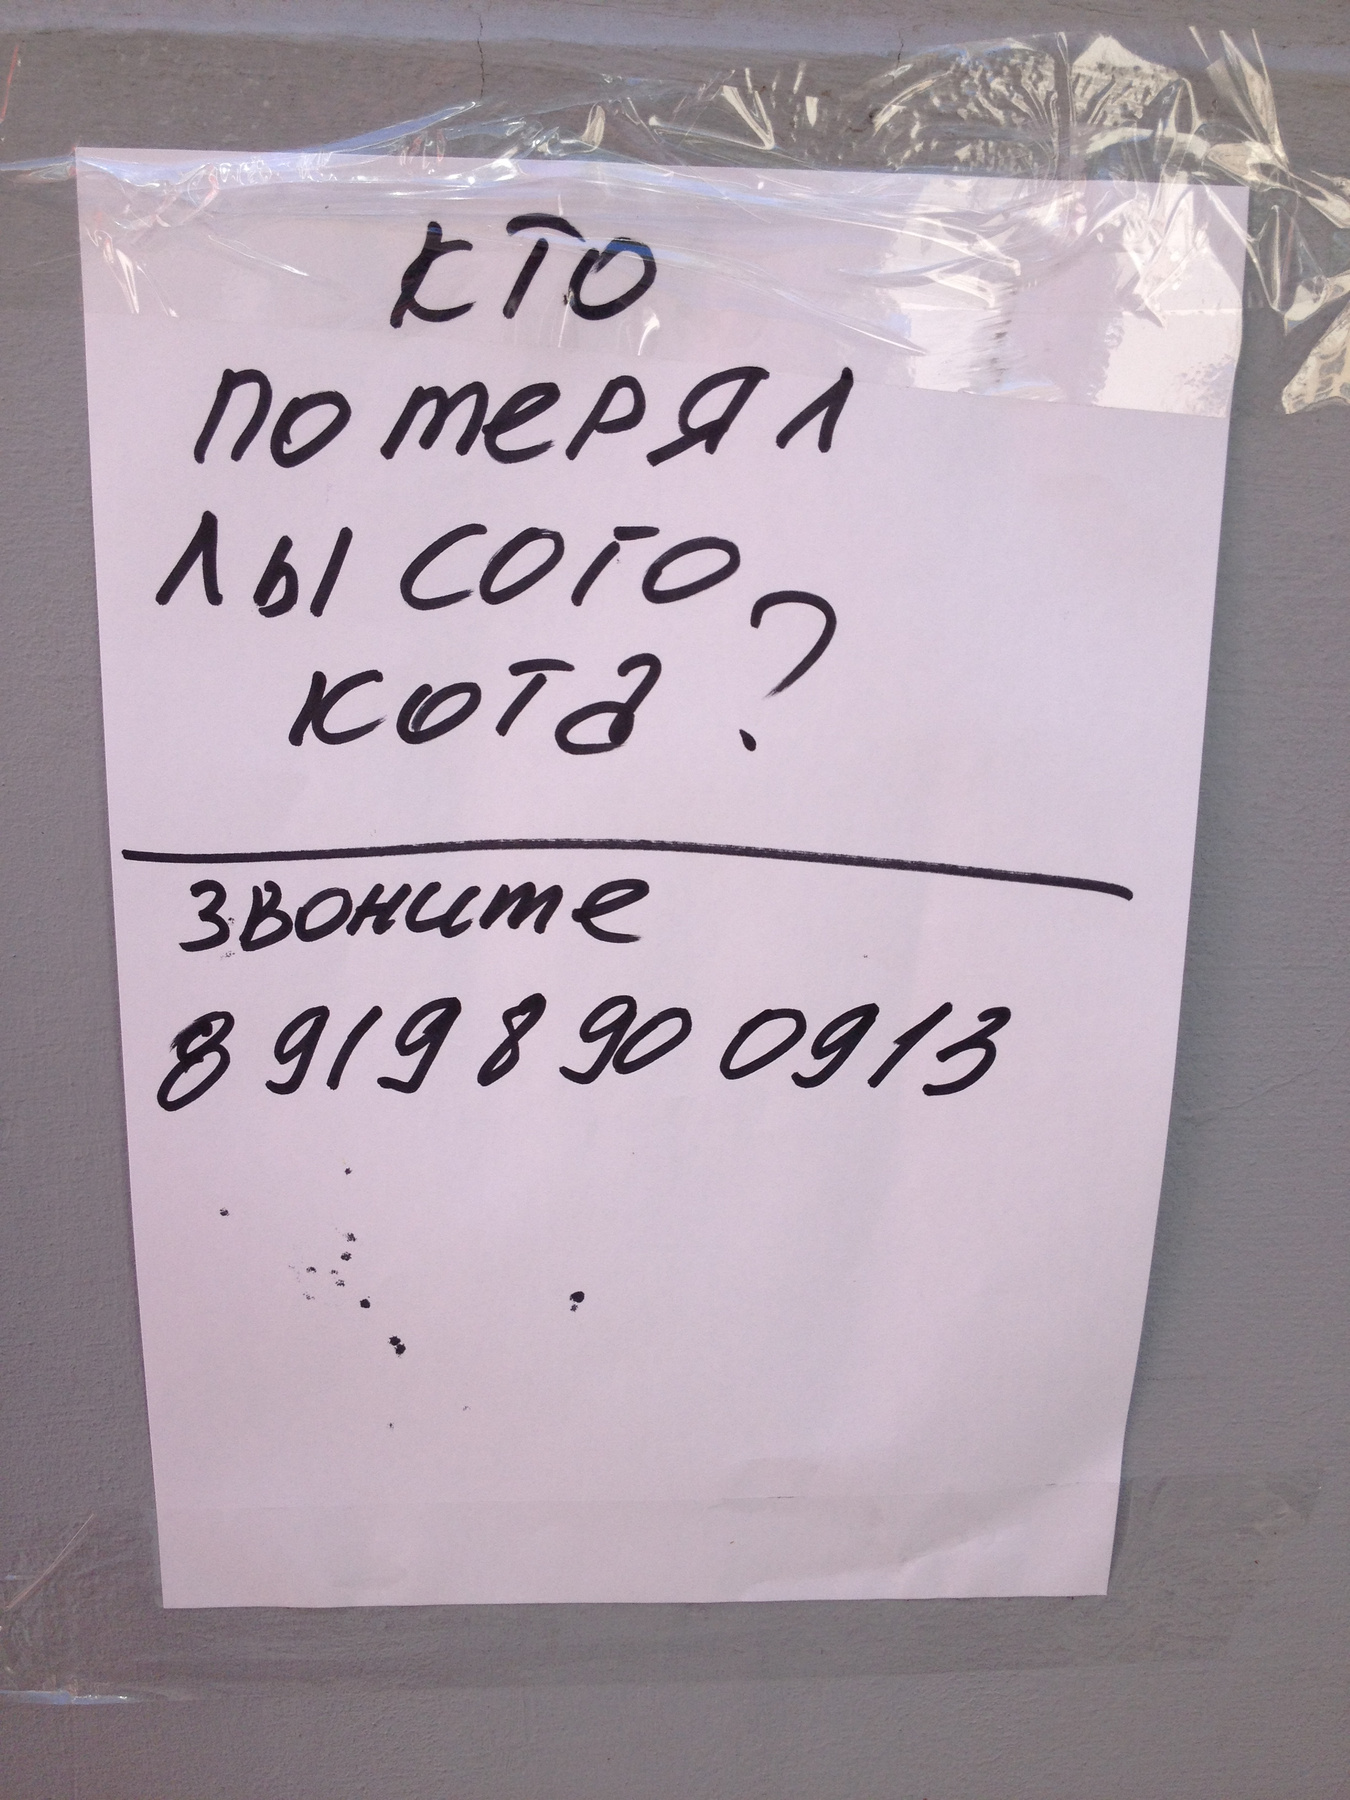 кто
потерял
лысого
кота?
звоните
8 919 8 90 0913